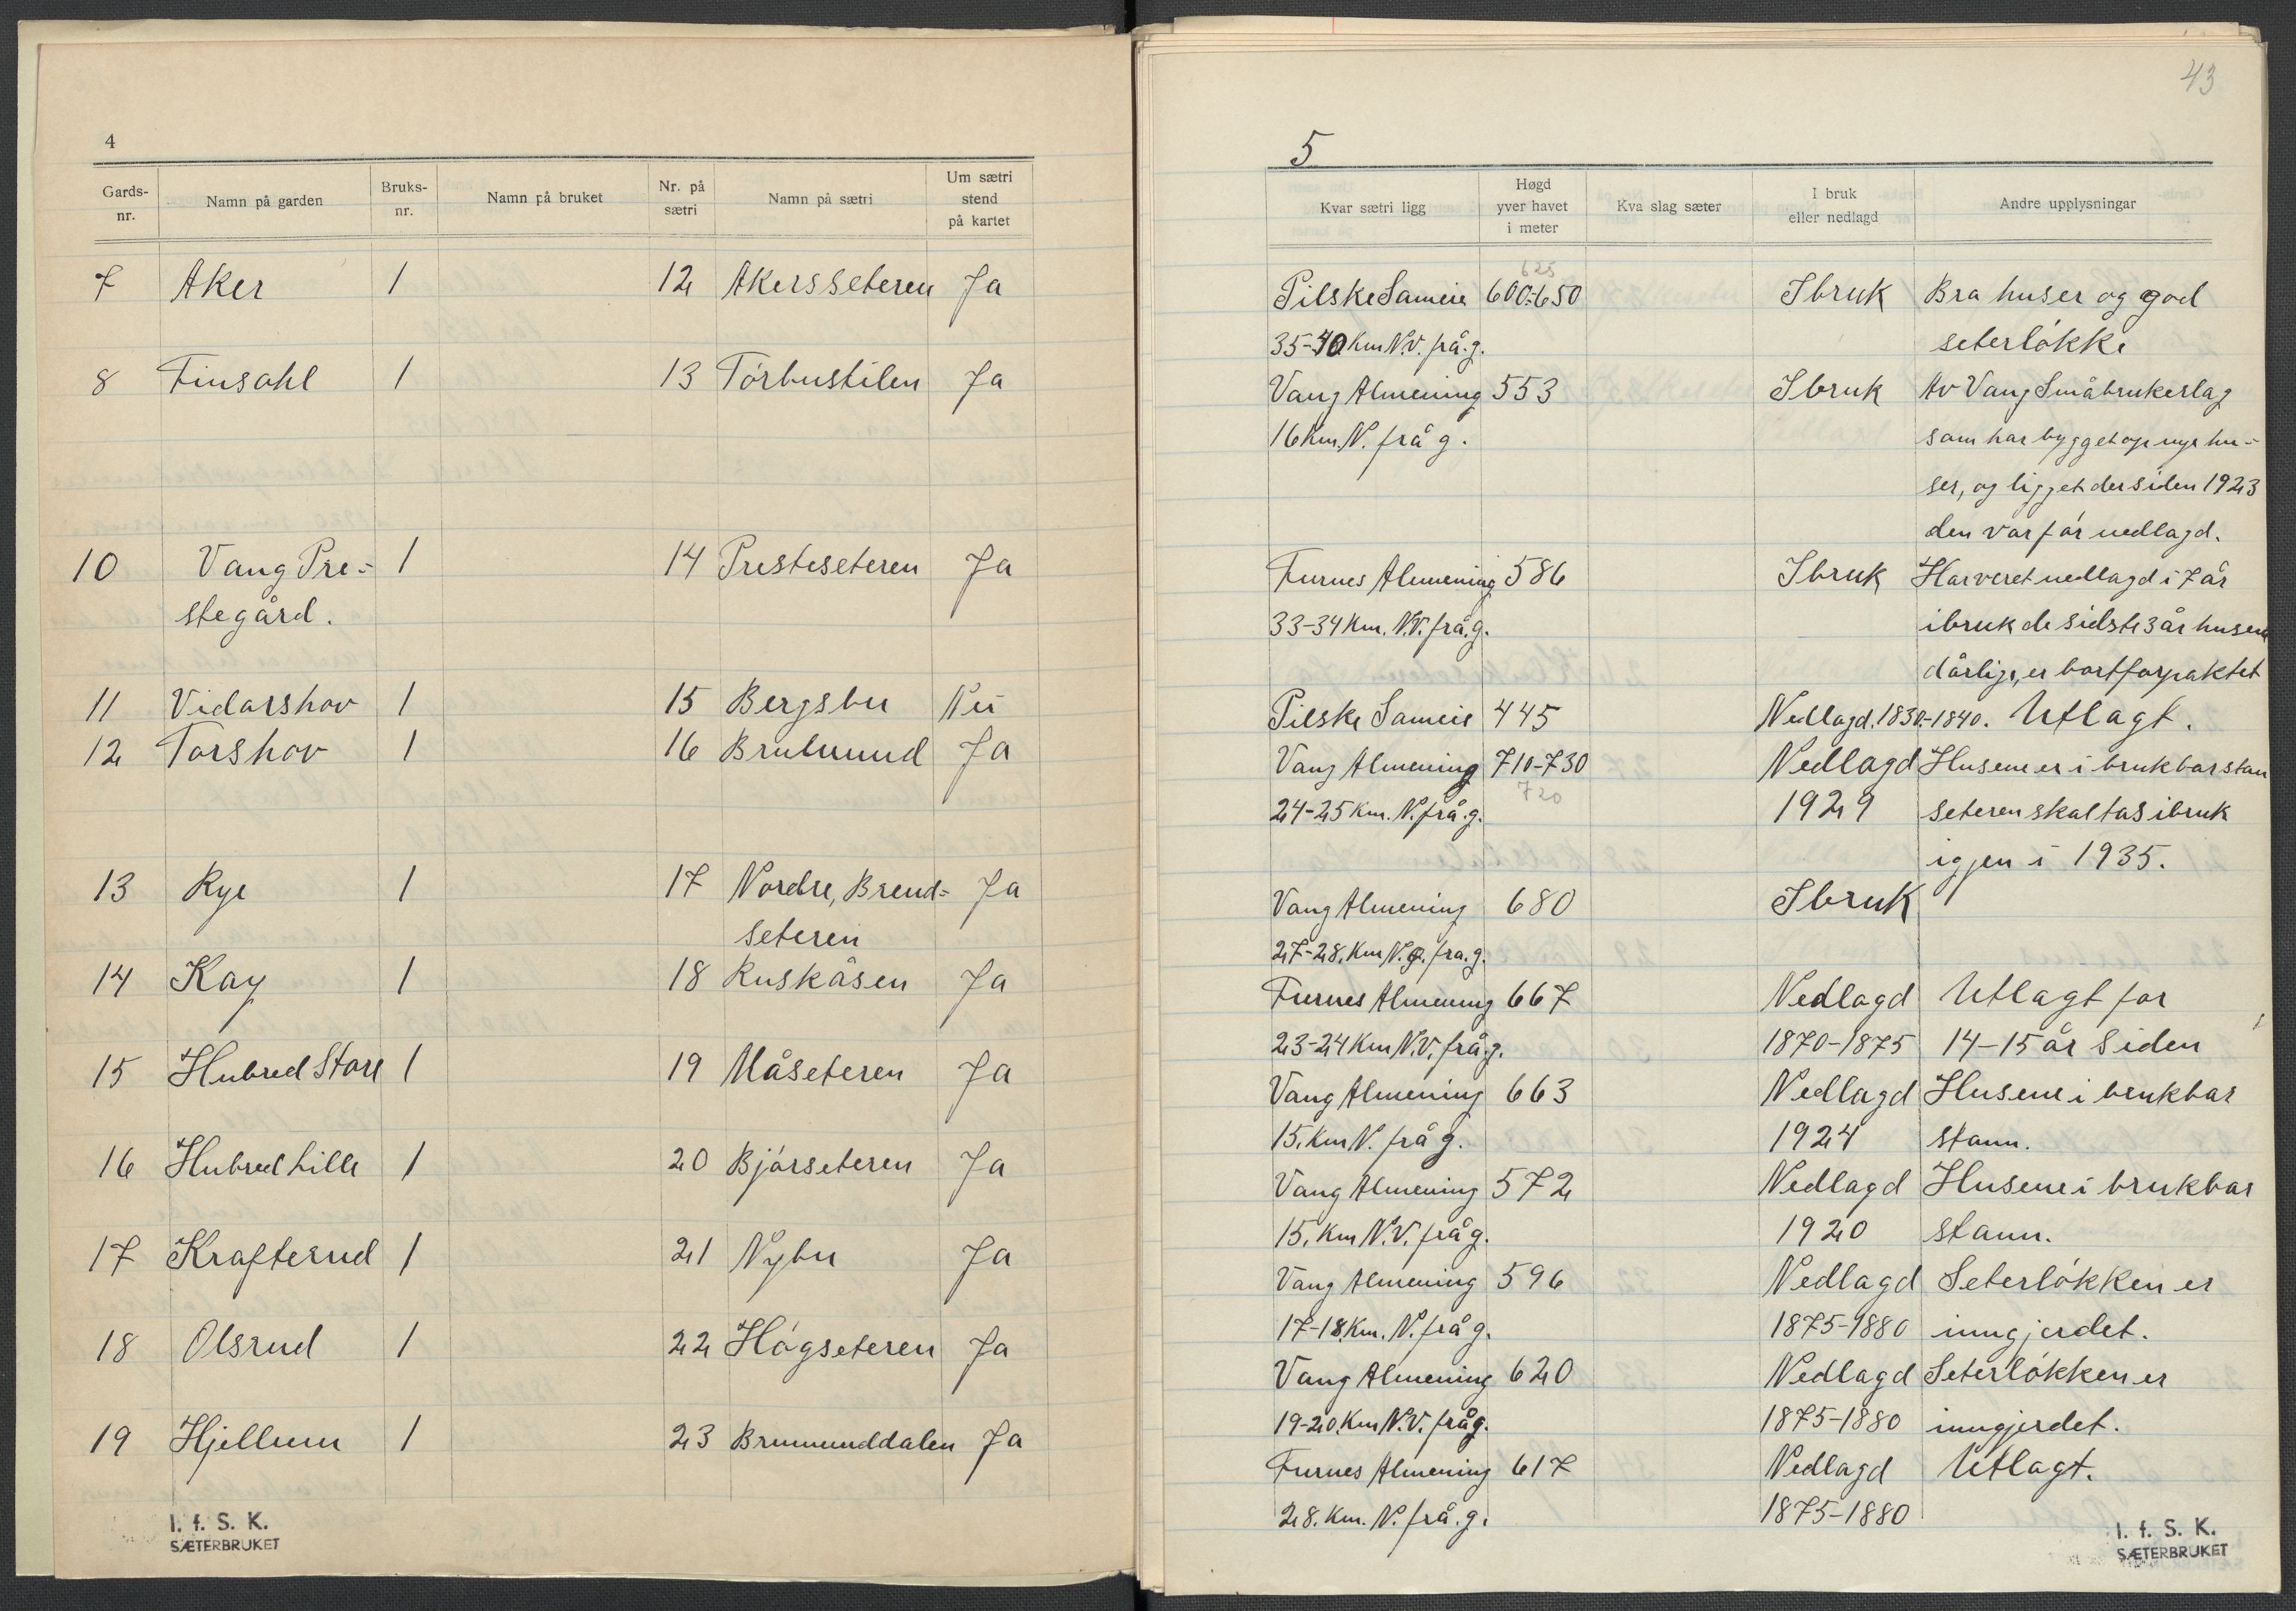 4
Gards-nr. Namn på garden Bruks-nr. Namn på bruket Nr. på sætri Namn på sætri Um sætri stend på kartet
7 Aker 1 12 Akersseteren Ja
8 Finsahl 1 13 Törbustilen Ja
10 Vang Pre- 1 14 Presteseteren Ja
stegård.
11 Vidarshov 1 15 Bergsbu Nei
12 Torshov 1 16 Brulund Ja
13 Rye 1 17 Nordre, Brend= Ja
seteren
14 Kay 1 18 Ruskåsen Ja
15 Hubred Store 1 19 Måseteren Ja
16 Hubred Lille 1 20 Bjørseteren Ja
17 Krafterud 1 21 Nybu Ja
18 Olsrud 1 22 Høgseteren Ja
19 Hjellum 1 23 Brumunddalen Ja
I. f. S. K.
SÆTERBRUKET
43
5
Kvar sætri ligg Høgd yver havet i meter Kva slag sæter I bruk eller nedlagd Andre upplysningar
625
Pilske Sameie 600-650 Ibruk Bra huser og god
35-40 Km N.V. frå.g. seterløkke
Vang Almening 553 Ibruk Av Vang Småbrukerlag
16 Km. N. frå g. som har bygget op nye hu-
ser, og ligget der siden 1923
den var før nedlagd.
Furnes Almening 586 Ibruk Har veret nedlagd i 7 år
33-34 Km. N.V. frå.g. ibruk de sidste 3 år husene
dårlige, er bortforpaktet
Pilske Sameie 445 Nedlagd. 1830-1840. Utlagt.
Vang Almening 710-730 Nedlagd Husene er i brukbar stan
720
24-25 Km. N. frå.g. 1929 seteren skal tas ibruk
igjen i 1935.
Vang Almening 680 Ibruk
27-28. Km N.Ø. fra.g.
Furnes Almening 667 Nedlagd Utlagt for
23-24 Km N.V. frå.g. 1870-1875 14-15 år siden
Vang Almening 663 Nedlagd Husene i brukbar
15. Km N. frå g. 1924 stann.
Vang Almening 572 Nedlagd Husene i brukbar
15. Km N.V. frå g. 1920 stann.
Vang Almening 596 Nedlagd Seterløkken er
17-18 Km. N. frå g. 1875-1880 inngjerdet.
Vang Almening 620 Nedlagd Seterløkken er
19-20. Km N.V. frå g. 1875-1880 inngjerdet.
Furnes Almening 617 Nedlagd Utlagt.
28. Km. N. frå.g. 1875-1880
I. f. S. K.
SÆTERBRUKET